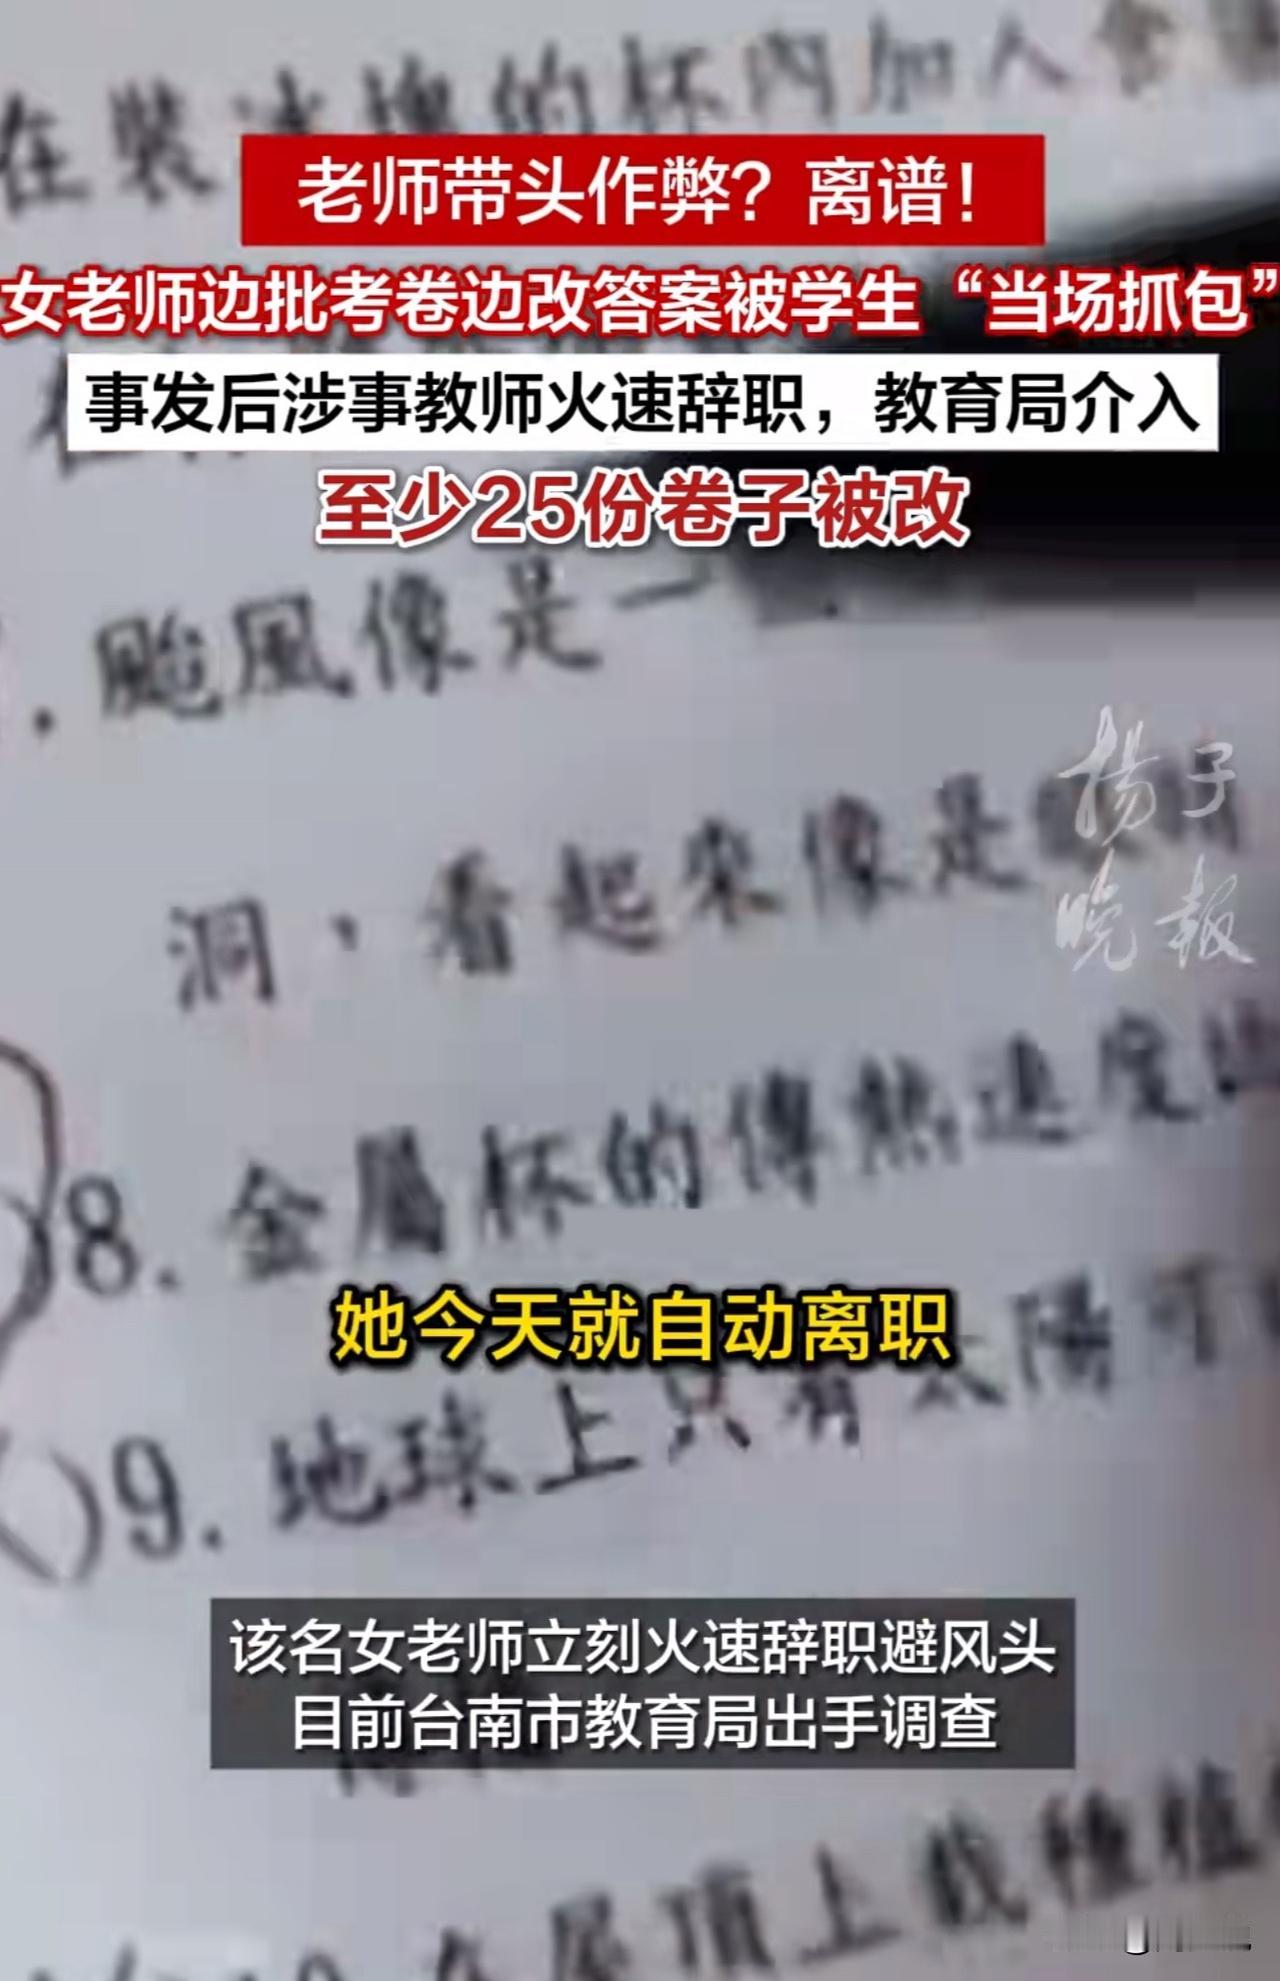 在裝冰塊的杯內加入食
老师带头作弊？离谱！
女老师边批考卷边改答案被学生“当场抓包”
事发后涉事教师火速辞职，教育局介入
至少25份卷子被改
颱風像是一
扬子
晚报
洞，看起來像是
8. 金屬杯的傳熱速度
她今天就自动离职
9. 地球上只有太陽可
该名女老师立刻火速辞职避风头
目前台南市教育局出手调查
屋頂上栽種植